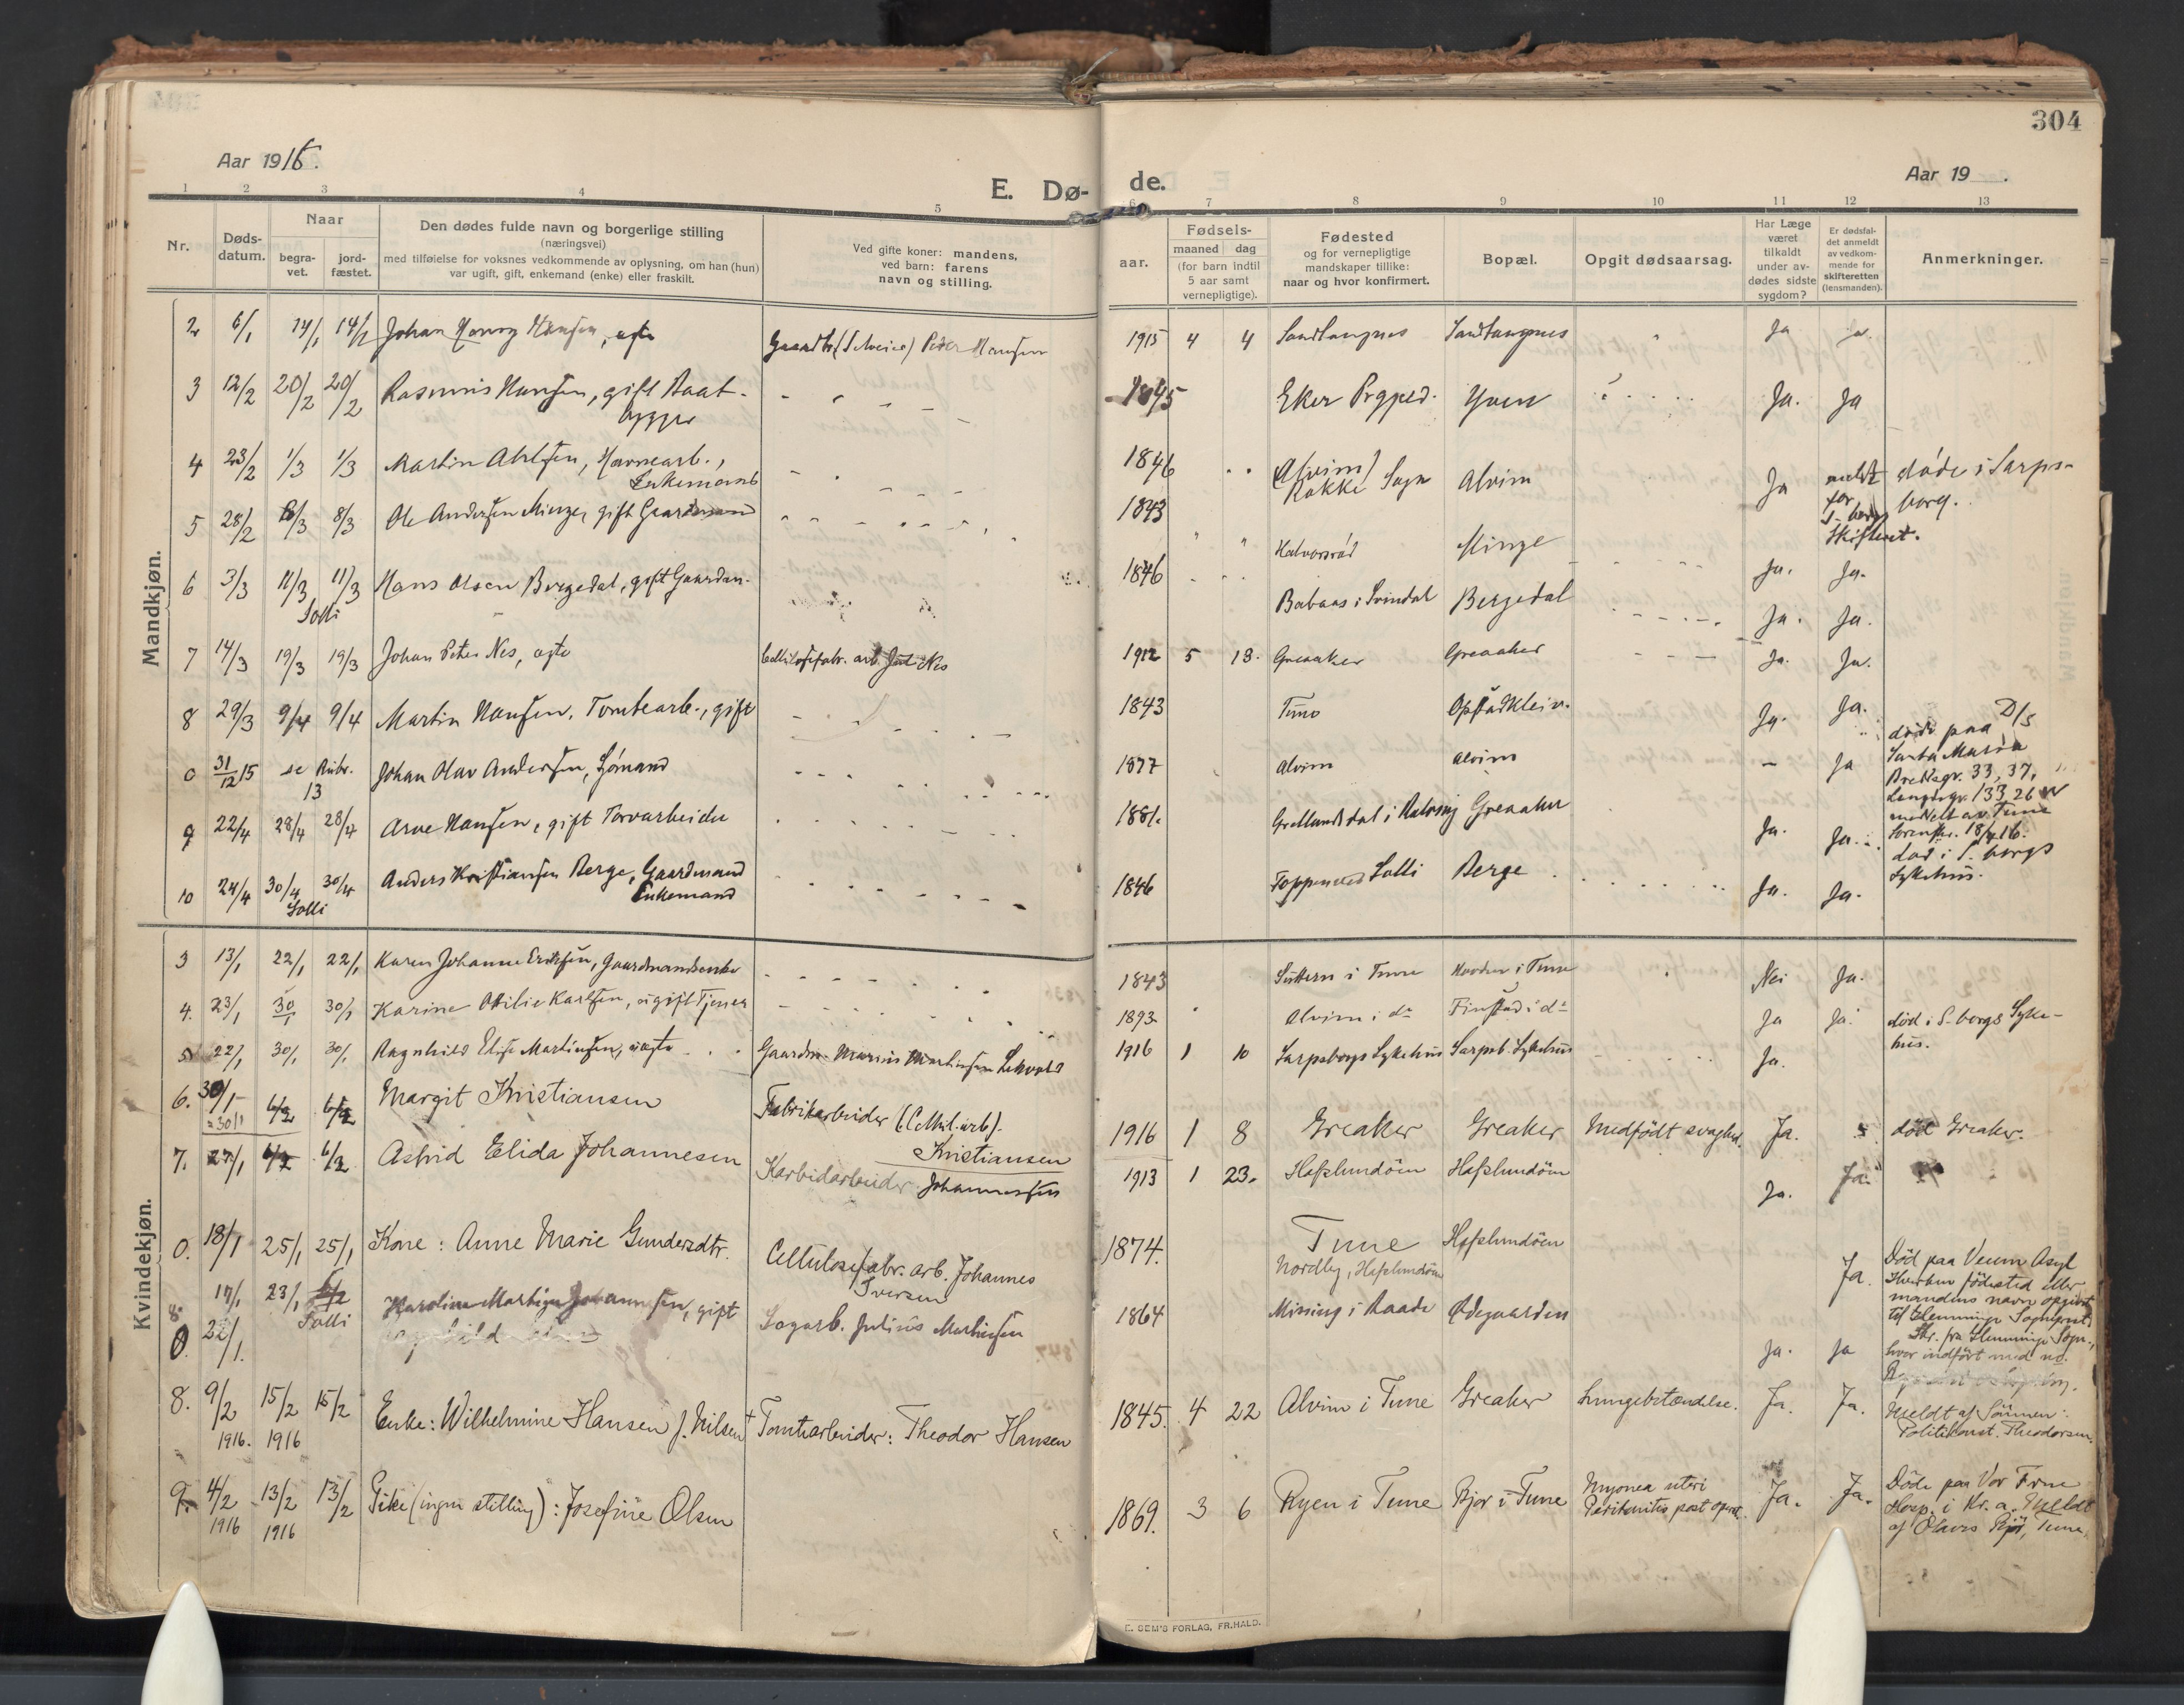 304
Aar 1916.
Aar 19   .
E. Dø-
de.
1 2 3 4 5
6 7 8 9 10 11 12 13
Nr.
Døds-
datum.
Naar
begra-
vet.
jord-
fæstet.
Den dødes fulde navn og borgerlige stilling
(næringsvei)
med tilføielse for voksnes vedkommende av oplysning, om han (hun)
var ugift, gift, enkemand (enke) eller fraskilt.
Ved gifte koner: mandens,
ved barn: farens
navn og stilling.
aar.
Fødsels-
maaned dag
(for barn indtil
5 aar samt
vernepligtige).
Fødested
og for vernepligtige
mandskaper tillike:
naar og hvor konfirmert.
Bopæl.
Opgit dødsaarsag.
Har Læge
været
tilkaldt
under av-
dødes sidste
sygdom?
Er dødsfal-
det anmeldt
av vedkom-
mende for
skifteretten
(lensmanden).
Anmerkninger.
Mandkjøn.
2 6/1 14/1 14/1 Johan Hansen, egte Peder Hansen 1915 4 4 Sandtangnes Sandtangnes Ja Ja.
3 12/2 20/2 20/2 Rasmus Hansen, gift Baat-
bygger 1845 Eker Yven Ja. Ja
4 23/2 1/3 1/3 Martin Ahlsen, Havnearb.,
Enkemand 1846 (Alvim)
Rokke Sogn Alvim Ja meldt
for
S-borg
Skifteret. døde i Sarps-
borg.
5 28/2 8/3 8/3 Ole Andersen Minge, gift Gaardmand 1843 Halvorsrød Minge Ja. Ja.
6 3/3 11/3 11/3 Hans Olsen Bergedal, gift Gaardm.
Solli 1846 i Svindal Bergedal Ja. Ja.
7 14/3 19/3 19/3 Johan Peter Nes, egte Cellulosefabr. arb. Nes 1912 5 13. Greaaker Greaaker Ja. Ja.
8 29/3 9/4 9/4 Martin Hansen, Tomtearb., gift 1843 Tune Ja. Ja.
0 31/12 15 se Rubr.
13 Johan Olav Andersen, Sjømand 1877 Alvim Alvim - Ja døde paa D/S
Santa Maria
Bredegr. 33, 37,
Lengdegr. 133 26 W
meddelt av Tune
Sorenskr. 18/4 16.
9 22/4 28/4 28/4 Arve Hansen, gift Torvarbeider 1881. i Greaaker Ja. Ja. død i S-borgs
Sykehus.
10 24/4 30/4 30/4 Anders Kristiansen Berge, Gaardmand
Solli Enkemand 1846 Solli Berge Ja. Ja.
Kvindekjøn.
3 13/1 22/1 22/1 Karen Johanne Eriksen, Gaardmandsenke 1843 i Tune i Tune Nei Ja.
4. 23/1 30/1 30/1 Karine Otilie Karlsen, ugift Tjener 1893 Alvim i do Finstad i do Ja Ja. død i S-borgs Syke-
hus.
5 22/1 30/1 30/1 Ragnhild Elise Martinsen, uegte Gaardm. Marius Martinsen 1916 1 10 Sarpsborgs Sykehus Sarpsb. Sykehus Ja.
6. 30/1
=30/1 6/2 6/2 Margit Kristiansen Fabrikarbeider (Cellul. arb).
Kristiansen 1916 1 8 Greaker Greaker Medfødt svaghed. Ja. død Greaker.
7. 27/1 6/2 6/2 Astrid Elida Johannesen Karbidarbeider Johannessen 1913 1 23. Hafslundöen Hafslundöen Ja. Ja.
0. 18/1 25/1 25/1 Kone: Anne Marie Gundersdtr. Cellulosefabr. arb. Johannes
Iversen 1874. Tune
Nordby, Hafslundöen Hafslundöen Ja. Död paa Veum Asyl
Hverken födested eller
mandens navn opgivet
til Glemminge Sogneprest.
Skr. fra Glemminge Sogn,
hvor indfört med no.
8. 17/1 23/1 6/2
Solli Karoline Johannesen, gift Sagarb. Julius Martinsen 1864 Missing i Raade Ødegaarden Ja. Ja
0. 22/1.
8. 9/2
1916. 15/2
1916 15/2 Enke: Wilhelmine Hansen f. Nilsen + Tomtarbeider: Theodor Hansen 1845. 4 22 Alvim i Tune Greaker Lungebetændelse. Ja. Ja. Meldt af Sönnen:
Politikonst. Theodorsen.
9. 4/2
1916 13/2
1916 13/2 Pike (ingen stilling): Josefine Olsen 1869. 3 6 Ryen i Tune Bjor i Tune Myoma uteri
Peritonitis post operat. Ja. Ja. Döde paa Vor Frue
Hosp. i Kr.a. Meldt
af Olaves Björ, Tune.
E. SEM'S FORLAG, FR.HALD.